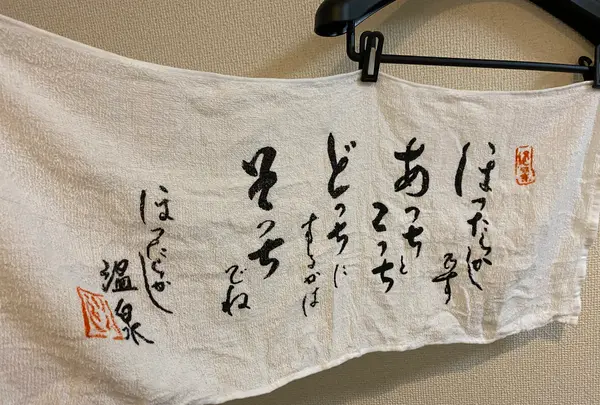 ほったらかし
です
あっちと
こっち
どっちに
するかは
そっち
でね
ほったらかし
温泉